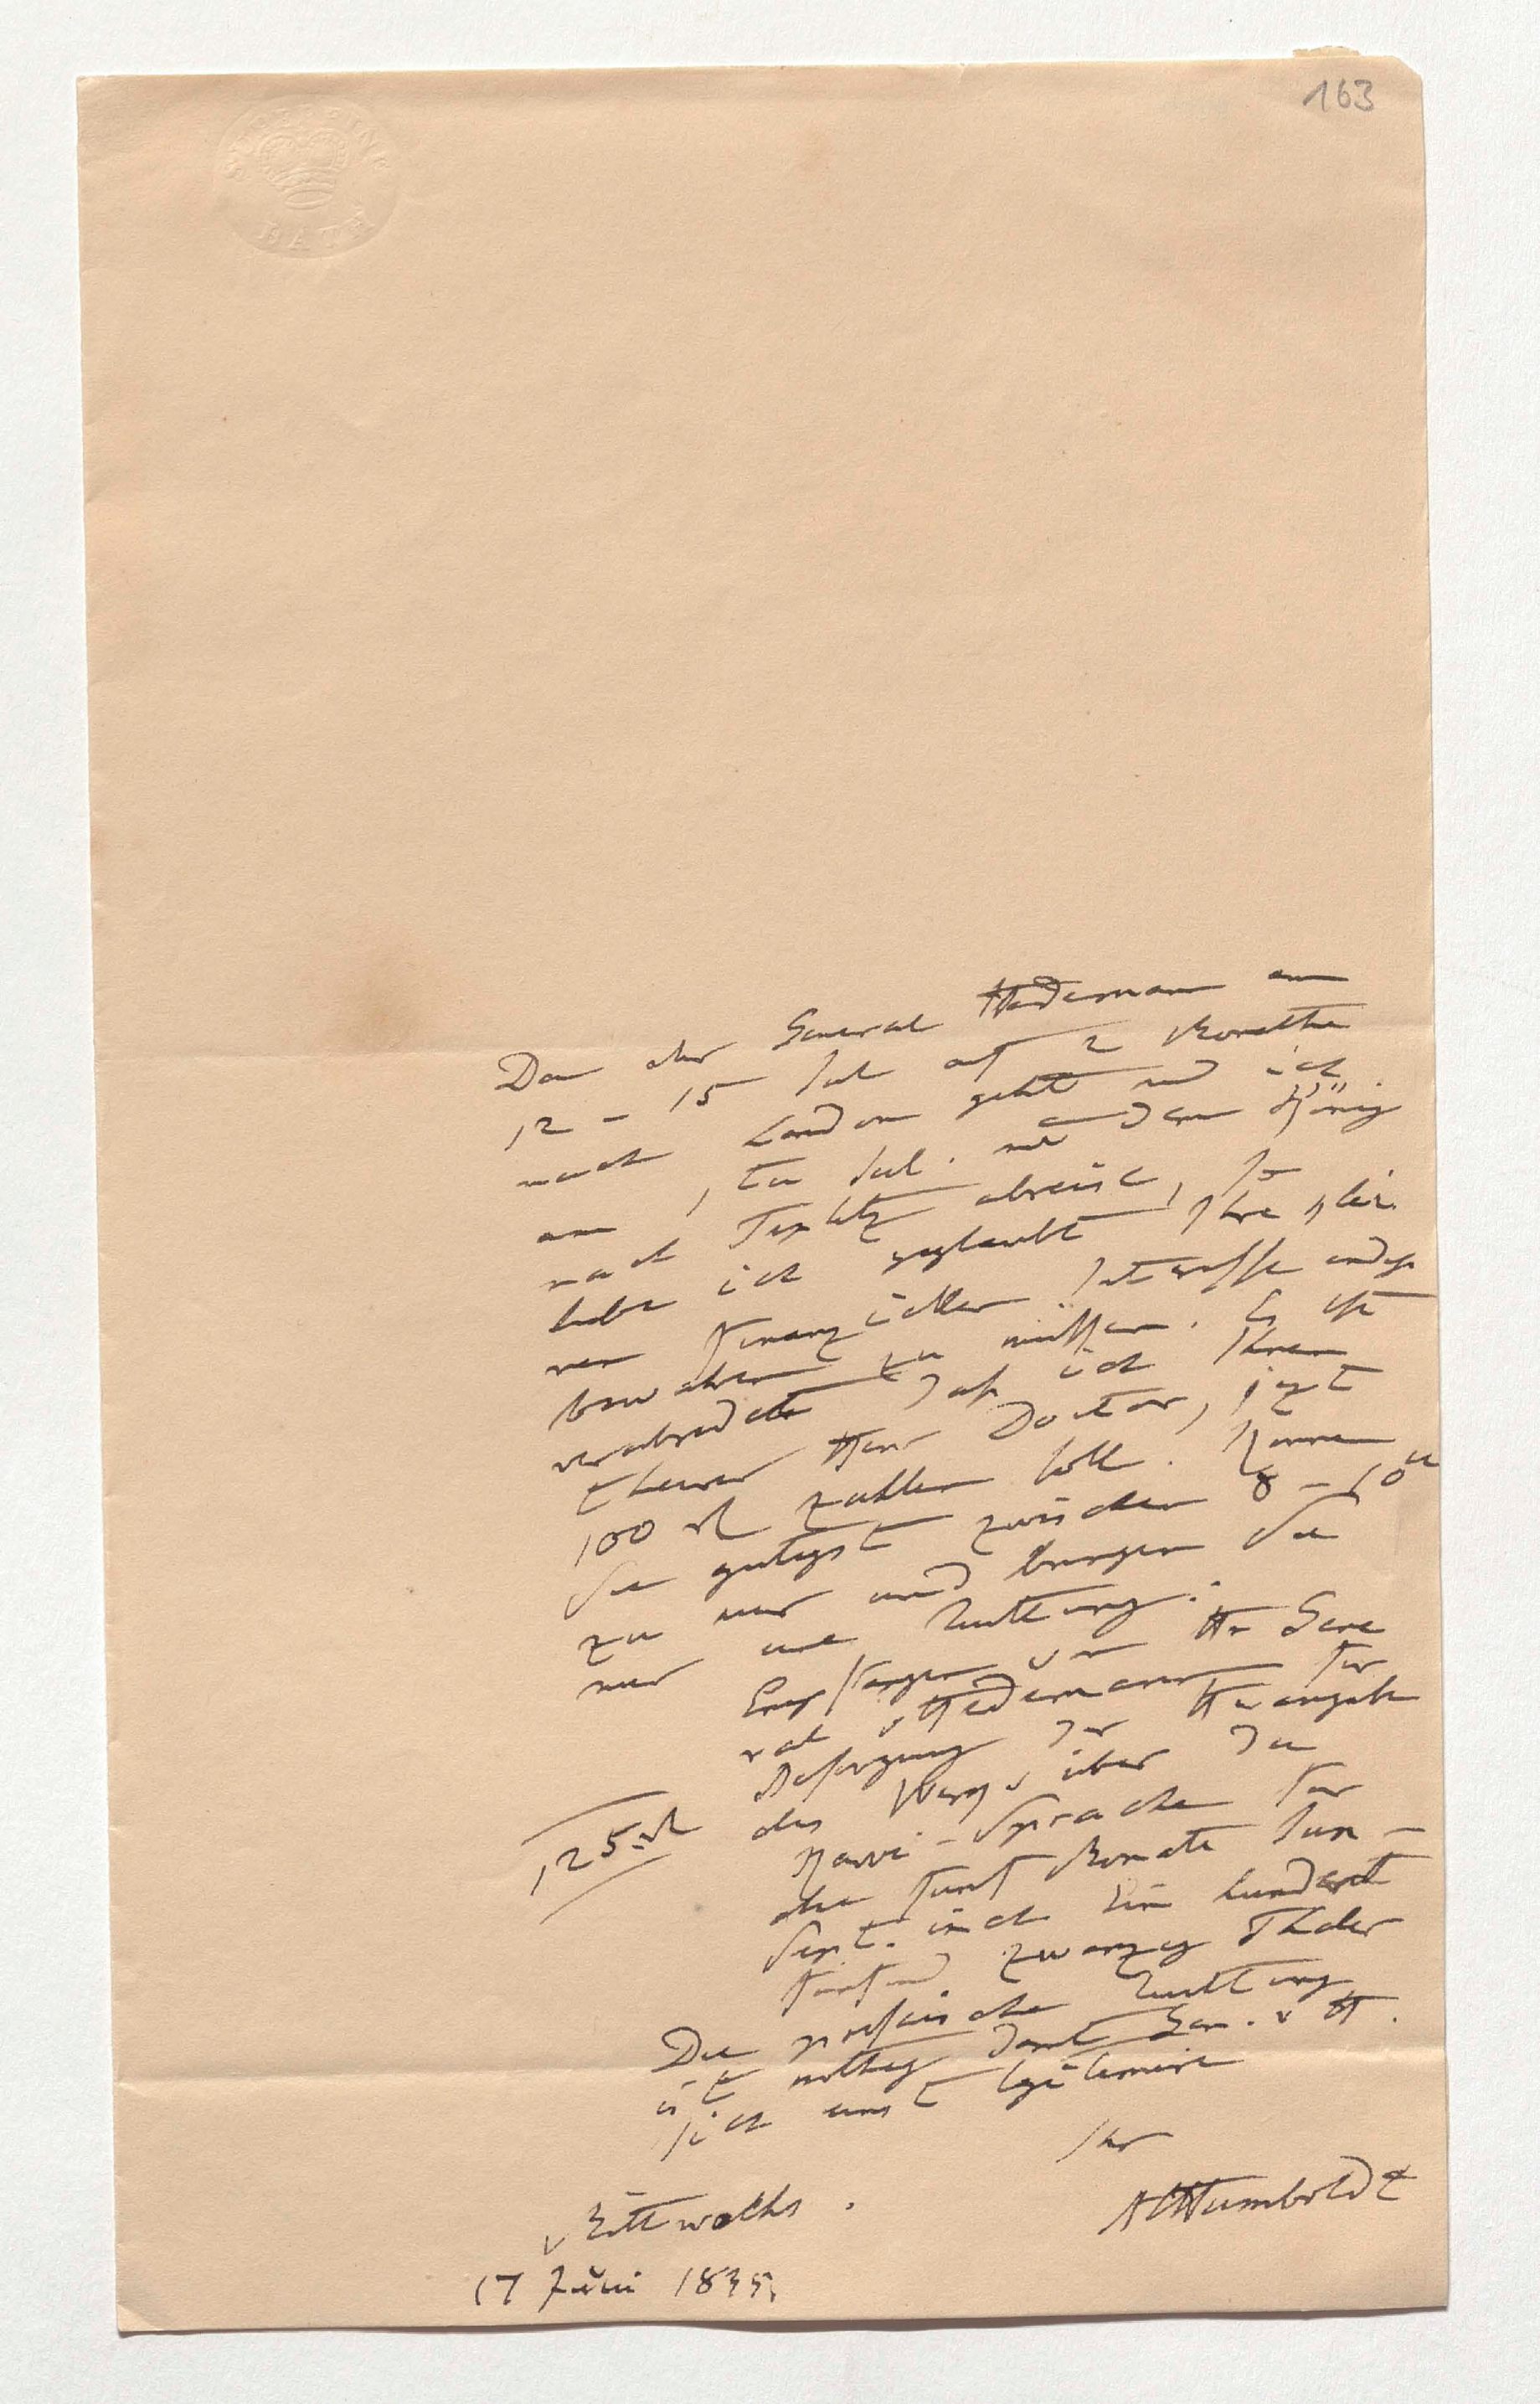 163
SUPERFINE
BATH
Da der General Hedemann am
12 – 15 Jul auf 2 Monathe
nach London geht und ich
am 1ten Jul. mit dem König
nach Teplitz abreise, so
habe ich geglaubt, Ihre klei-
nen finanziellen Interesse
bewahren zu müssen. Es ist
verabredet daß ich Ihnen
theurer Herr Doctor, jezt
100 rl zahlen soll. Kommen
Sie gütigst zwischen 8 – 10u
zu mir und bringen Sie
mir eine Quittung:
Empfangen von Hn Gene
ral v Hedemann für
Besorgung der Herausgabe
des Werks über die
Kawi-Sprache für
die fünf Monate Jun –
Sept. incl. Ein hundert
fünfund zwanzig Thaler
125 rl
Die preussische Quittung
ist nöthig damit Gen. v H.
sich einst legitimire
Ihr
AHumboldt
Mittwochs.
17 Juni 1835.